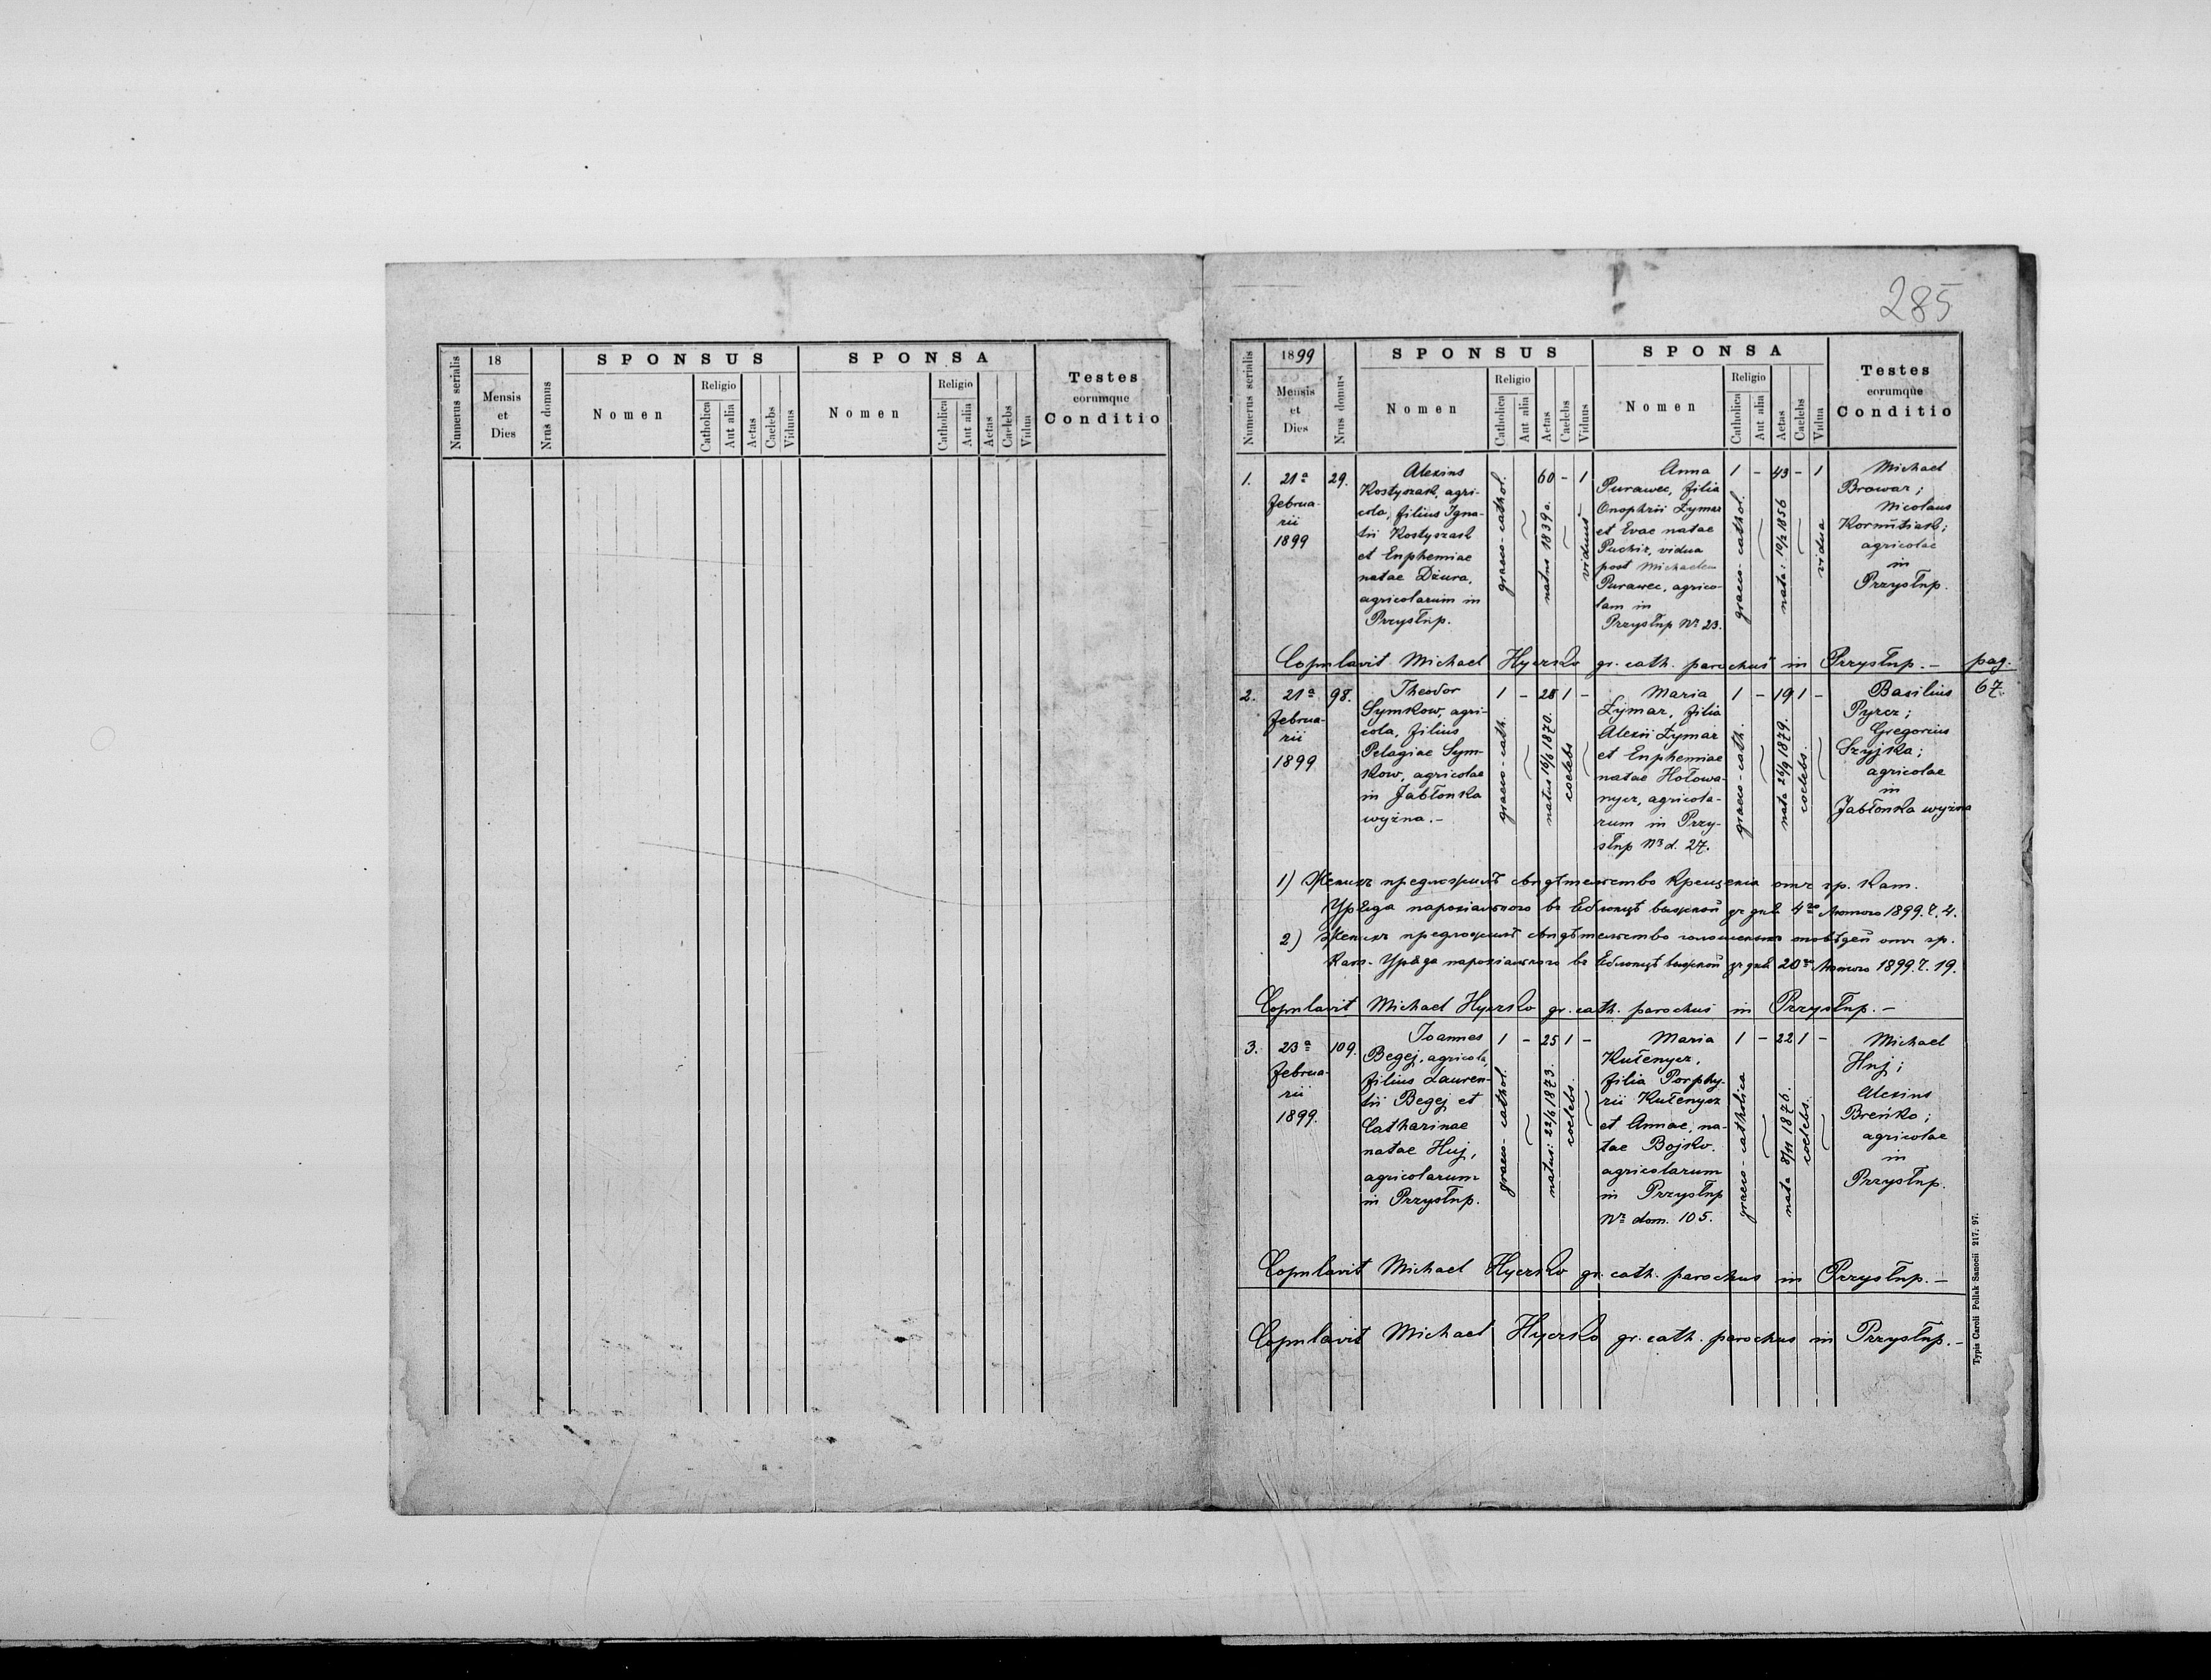 Numerus serialis
18
Mensis
et
Dies
Nrus domus
SPONSUS
Nomen
Religio
Catholica
Aut alia
Aetas
Caelebs
Viduus
SPONSA
Nomen
Religio
Catholica
Aut alia
Aetas
Caelebs
Vidua
Testes
eorumque
Conditio
285
Numerus serialis
1899
Mensis
et
Dies
Nrus domus
SPONSUS
Nomen
Religio
Catholica
Aut alia
Aetas
Caelebs
Viduus
SPONSA
Nomen
Religio
Catholica
Aut alia
Aetas
Caelebs
Vidua
Testes
eorumque
Conditio
1.
21a
Februa-
rii
1899
29.
Alexius
Kostyszak, agri-
cola, filius Igna-
tii Kostyszak
et Euphemiae
natae Dżura,
agricolarum in
Przysłup.
graeco-cathol.
60 - 1
natus 1839 a.
viduus
Anna
Purawec, filia
Onophrii Łymar
et Evae natae
Puchir, vidua
post Michaelem
Purawec, agrico-
lam in
Przysłup Nr 23.
1 - 43 - 1
graeco-cathol.
nata: 10/2 1856
vidua
Michael
Browar;
Nicolaus
Kornutiak;
agricolae
in
Przysłup.
Copulavit Michael Hycrsko gr. cath. parochus in Przysłup. –
pag.
67.
2.
21a
Februa-
rii
1899
98.
Theodor
Symkow, agri-
cola, filius
Pelagiae Sym-
kow, agricolae
in Jabłonka
wyżna. –
1 - 28 1 -
graeco-cath.
natus 16/6 1870.
coelebs
Maria
Łymar, filia
Alexii Łymar
et Euphemiae
natae Hołowa-
nycz, agricola-
rum in Przy-
słup Nr d. 27.
1 - 19 1 -
graeco-cath.
nata 26/9 1879.
coelebs.
Basilius
Pyrcz;
Gregorius
Szyjka;
agricolae
in
Jabłonka wyżna
1) Женихъ предложилъ свидѣтельство крещенія отъ гр. кат.
Уряда парохіального въ Яблонцѣ выжной зъ дня 4го Лютого 1899. Ч. 4.
2) Женихъ предложилъ свидѣтельство отъ гр.
Кат. Уряда парохіального въ Яблонцѣ выжной зъ дня 20го Лютого 1899. Ч. 19.
Copulavit Michael Hycrsko gr. cath. parochus in Przysłup. –
3.
23a
Februa-
rii
1899.
109.
Joannes
Begej, agricola,
filius Lauren-
tii Begej et
Catharinae
natae Huj,
agricolarum
in Przysłup.
1 - 25 1 -
graeco-cathol.
natus: 22/6 1873.
coelebs.
Maria
Kułenycz,
filia Porphy-
rii Kułenycz
et Annae, na-
tae Bojko.
agricolarum
in Przysłup
Nr dom. 105.
1 - 22 1 -
graeco-catholica
nata 8/11 1876.
coelebs.
Michael
Huj;
Alexius
Breńko;
agricolae
in
Przysłup.
Copulavit Michael Hycrsko gr. cath. parochus in Przysłup. –
Copulavit Michael Hycrsko gr. cath. parochus in Przysłup. –
Typis Caroli Pollak Sanocii 217. 97.